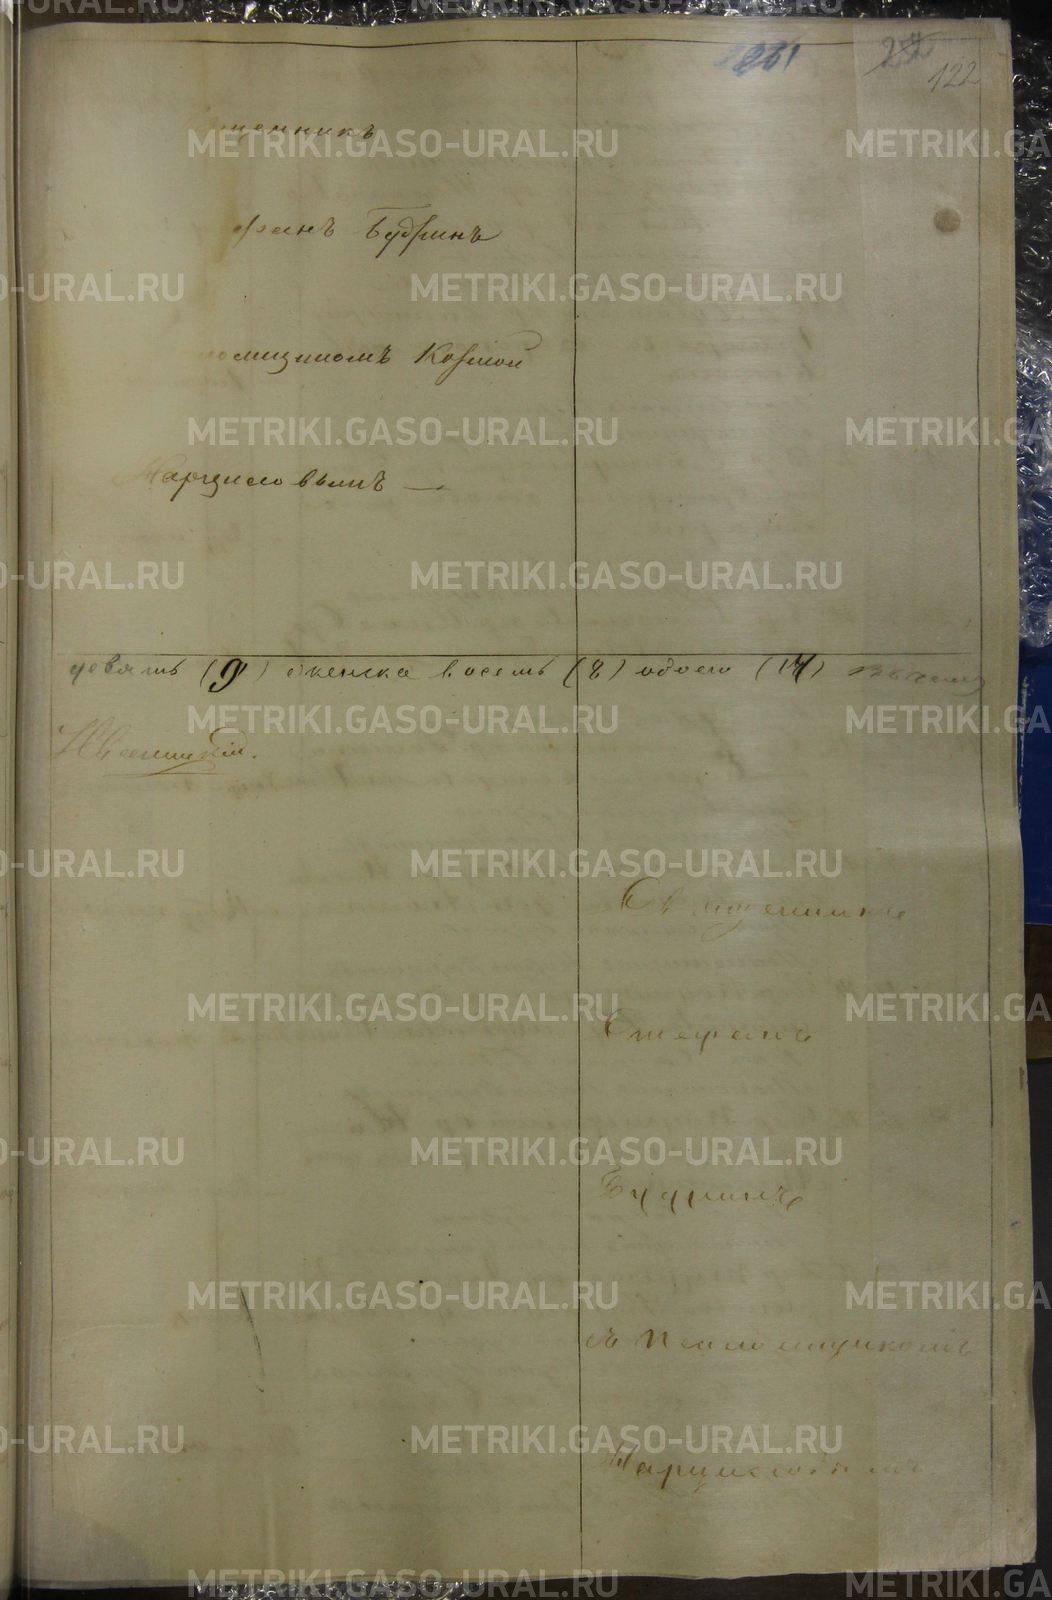 261
122
щенникъ
фанъ Будринъ
ломщикомъ Козмой
Нарциссовымъ —
девять (9) женска восемь (8) обоего (17)
Священникъ
Стефанъ
Будринъ
съ Псаломщикомъ
Нарциссовымъ
METRIKI.GASO-URAL.RU